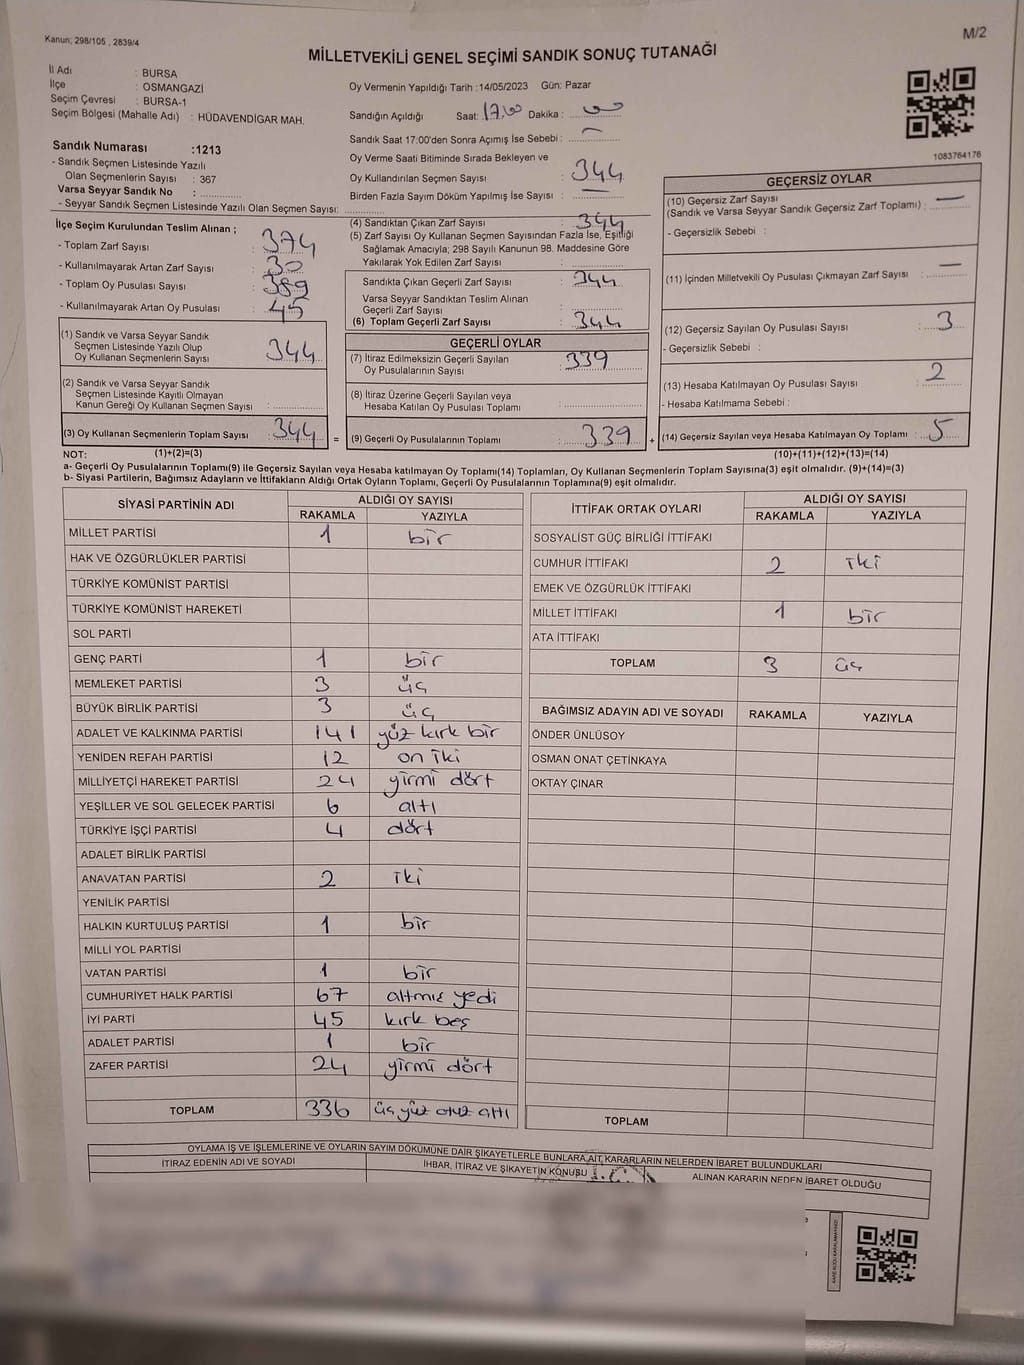 Kanun; 298/105 , 2839/4
M/2
MİLLETVEKİLİ GENEL SEÇİMİ SANDIK SONUÇ TUTANAĞI
İl Adı : BURSA
İlçe : OSMANGAZİ
Seçim Çevresi : BURSA-1
Seçim Bölgesi (Mahalle Adı) : HÜDAVENDİGAR MAH.
Sandık Numarası :1213
- Sandık Seçmen Listesinde Yazılı
Olan Seçmenlerin Sayısı : 367
Varsa Seyyar Sandık No :
- Seyyar Sandık Seçmen Listesinde Yazılı Olan Seçmen Sayısı:
İlçe Seçim Kurulundan Teslim Alınan ;
- Toplam Zarf Sayısı : 374
- Kullanılmayarak Artan Zarf Sayısı : 30
- Toplam Oy Pusulası Sayısı : 389
- Kullanılmayarak Artan Oy Pusulası : 45
(1) Sandık ve Varsa Seyyar Sandık
Seçmen Listesinde Yazılı Olup
Oy Kullanan Seçmenlerin Sayısı : 344
(2) Sandık ve Varsa Seyyar Sandık
Seçmen Listesinde Kayıtlı Olmayan
Kanun Gereği Oy Kullanan Seçmen Sayısı :
(3) Oy Kullanan Seçmenlerin Toplam Sayısı : 344 =
Oy Vermenin Yapıldığı Tarih :14/05/2023 Gün: Pazar
Sandığın Açıldığı Saat: 17,00 Dakika : 00
Sandık Saat 17:00'den Sonra Açımış İse Sebebi : —
Oy Verme Saati Bitiminde Sırada Bekleyen ve
Oy Kullandırılan Seçmen Sayısı : 344
Birden Fazla Sayım Döküm Yapılmış İse Sayısı : —
(4) Sandıktan Çıkan Zarf Sayısı : 344
(5) Zarf Sayısı Oy Kullanan Seçmen Sayısından Fazla İse, Eşitliği
Sağlamak Amacıyla; 298 Sayılı Kanunun 98. Maddesine Göre
Yakılarak Yok Edilen Zarf Sayısı :
Sandıkta Çıkan Geçerli Zarf Sayısı : 344
Varsa Seyyar Sandıktan Teslim Alınan
Geçerli Zarf Sayısı :
(6) Toplam Geçerli Zarf Sayısı : 344
GEÇERLİ OYLAR
(7) İtiraz Edilmeksizin Geçerli Sayılan
Oy Pusulalarının Sayısı : 339
(8) İtiraz Üzerine Geçerli Sayılan veya
Hesaba Katılan Oy Pusulası Toplamı :
(9) Geçerli Oy Pusulalarının Toplamı : 339 +
1083764176
GEÇERSİZ OYLAR
(10) Geçersiz Zarf Sayısı
(Sandık ve Varsa Seyyar Sandık Geçersiz Zarf Toplamı) : —
- Geçersizlik Sebebi :
(11) İçinden Milletvekili Oy Pusulası Çıkmayan Zarf Sayısı : —
(12) Geçersiz Sayılan Oy Pusulası Sayısı : 3
- Geçersizlik Sebebi :
(13) Hesaba Katılmayan Oy Pusulası Sayısı : 2
- Hesaba Katılmama Sebebi :
(14) Geçersiz Sayılan veya Hesaba Katılmayan Oy Toplamı : 5
NOT: (1)+(2)=(3) (10)+(11)+(12)+(13)=(14)
a- Geçerli Oy Pusulalarının Toplamı(9) ile Geçersiz Sayılan veya Hesaba katılmayan Oy Toplamı(14) Toplamları, Oy Kullanan Seçmenlerin Toplam Sayısına(3) eşit olmalıdır. (9)+(14)=(3)
b- Siyasi Partilerin, Bağımsız Adayların ve İttifakların Aldığı Ortak Oyların Toplamı, Geçerli Oy Pusulalarının Toplamına(9) eşit olmalıdır.
SİYASİ PARTİNİN ADI ALDIĞI OY SAYISI
RAKAMLA YAZIYLA
MİLLET PARTİSİ 1 bir
HAK VE ÖZGÜRLÜKLER PARTİSİ
TÜRKİYE KOMÜNİST PARTİSİ
TÜRKİYE KOMÜNİST HAREKETİ
SOL PARTİ
GENÇ PARTİ 1 bir
MEMLEKET PARTİSİ 3 üç
BÜYÜK BİRLİK PARTİSİ 3 üç
ADALET VE KALKINMA PARTİSİ 141 yüz kırk bir
YENİDEN REFAH PARTİSİ 12 on iki
MİLLİYETÇİ HAREKET PARTİSİ 24 yirmi dört
YEŞİLLER VE SOL GELECEK PARTİSİ 6 altı
TÜRKİYE İŞÇİ PARTİSİ 4 dört
ADALET BİRLİK PARTİSİ
ANAVATAN PARTİSİ 2 iki
YENİLİK PARTİSİ
HALKIN KURTULUŞ PARTİSİ 1 bir
MİLLİ YOL PARTİSİ
VATAN PARTİSİ 1 bir
CUMHURİYET HALK PARTİSİ 67 altmış yedi
İYİ PARTİ 45 kırk beş
ADALET PARTİSİ 1 bir
ZAFER PARTİSİ 24 yirmi dört
TOPLAM 336 üç yüz otuz altı
İTTİFAK ORTAK OYLARI ALDIĞI OY SAYISI
RAKAMLA YAZIYLA
SOSYALİST GÜÇ BİRLİĞİ İTTİFAKI
CUMHUR İTTİFAKI 2 iki
EMEK VE ÖZGÜRLÜK İTTİFAKI
MİLLET İTTİFAKI 1 bir
ATA İTTİFAKI
TOPLAM 3 üç
BAĞIMSIZ ADAYIN ADI VE SOYADI RAKAMLA YAZIYLA
ÖNDER ÜNLÜSOY
OSMAN ONAT ÇETİNKAYA
OKTAY ÇINAR
TOPLAM
OYLAMA İŞ VE İŞLEMLERİNE VE OYLARIN SAYIM DÖKÜMÜNE DAİR ŞİKAYETLERLE BUNLARA AİT KARARLARIN NELERDEN İBARET BULUNDUKLARI
İTİRAZ EDENİN ADI VE SOYADI İHBAR, İTİRAZ VE ŞİKAYETİN KONUSU ALINAN KARARIN NEDEN İBARET OLDUĞU